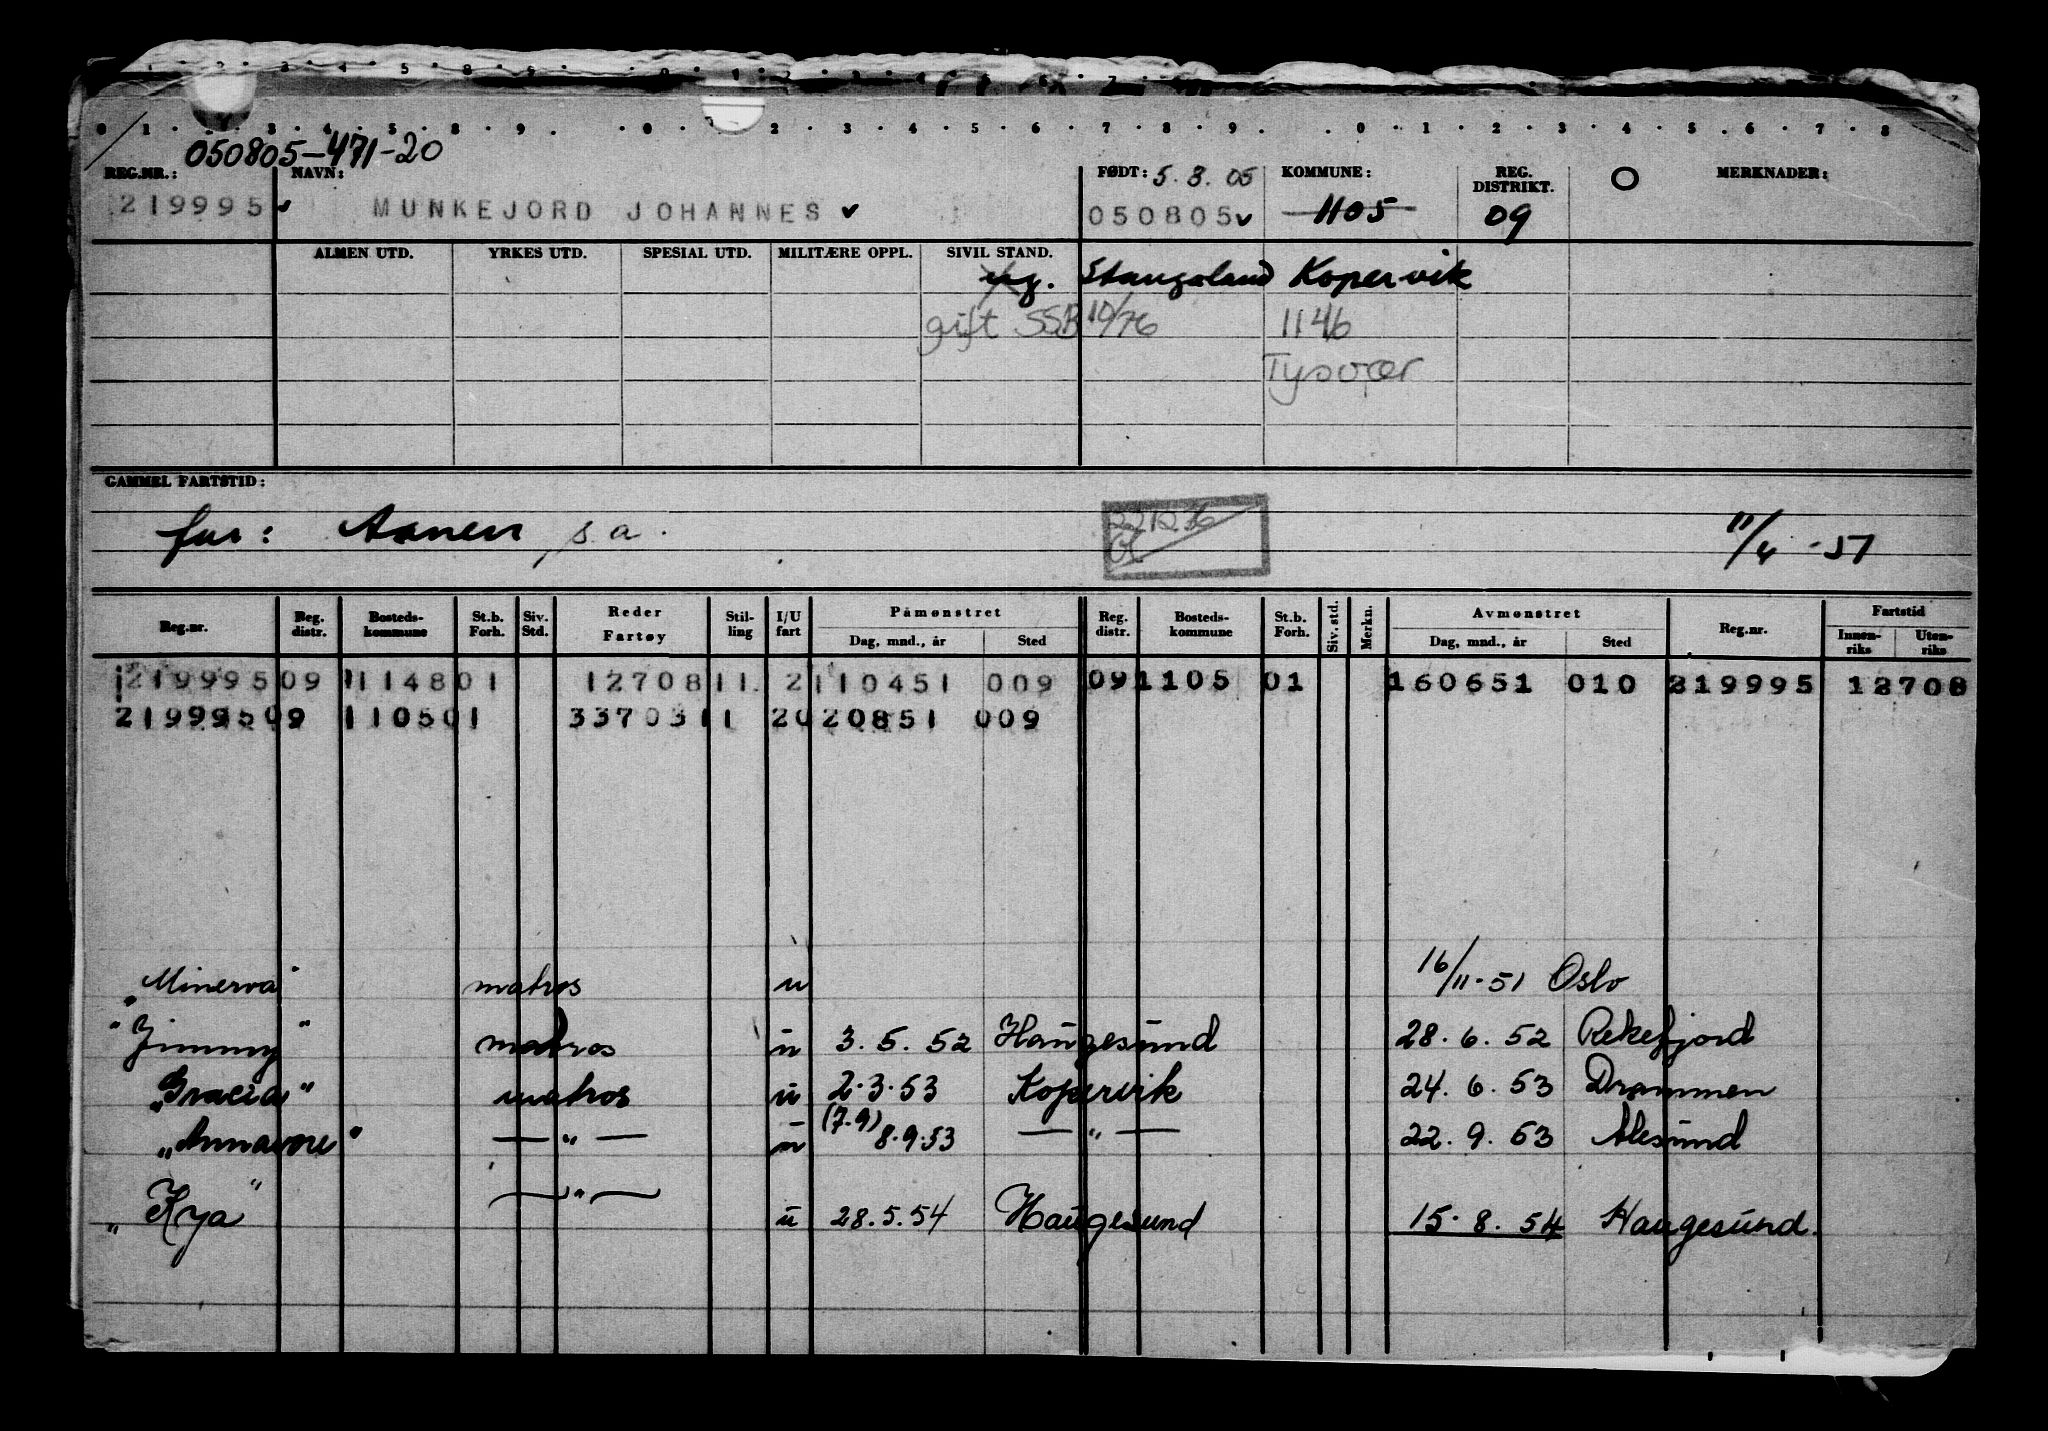 050805-471-20
REG.NR.: NAVN: FØDT: 5. 8. 05 KOMMUNE: REG. DISTRIKT. O MERKNADER:
219995 MUNKEJORD JOHANNES 050805 1105 09
ALMEN UTD. YRKES UTD. SPESIAL UTD. MILITÆRE OPPL. SIVIL STAND.
ug. Stangeland Kopervik
gift SSB 10/76 1146
Tysvær
GAMMEL FARTSTID:
far: Aanen s.a. 11/4 -51
Reg.nr. Reg. distr. Bosteds-kommune St.b. Forh. Siv. Std. Reder Fartøy Stil-ling I/U fart Påmønstret Dag, mnd., år Sted Reg. distr. Bosteds-kommune St.b. Forh. Siv. std. Merkn. Avmønstret Dag, mnd., år Sted Reg.nr. Fartstid Innen-riks Uten-riks
219995 09 1148 01 12708 11 2 110451 009 09 1105 01 160651 010 219995 12708
219995 09 1105 01 33703 11 2 020851 009
"Minerva" matros u 16/11-51 Oslo
"Jimmy" matros u 3. 5. 52 Haugesund 28. 6. 52 Rekefjord
"Gracia" matros u 2.3.53 Kopervik 24. 6. 53 Drammen
"Annavore" — " — u (7.9) 8.9.53 — " — 22. 9. 53 Ålesund
"Kya" — " — u 28.5.54 Haugesund 15. 8. 54 Haugesund.